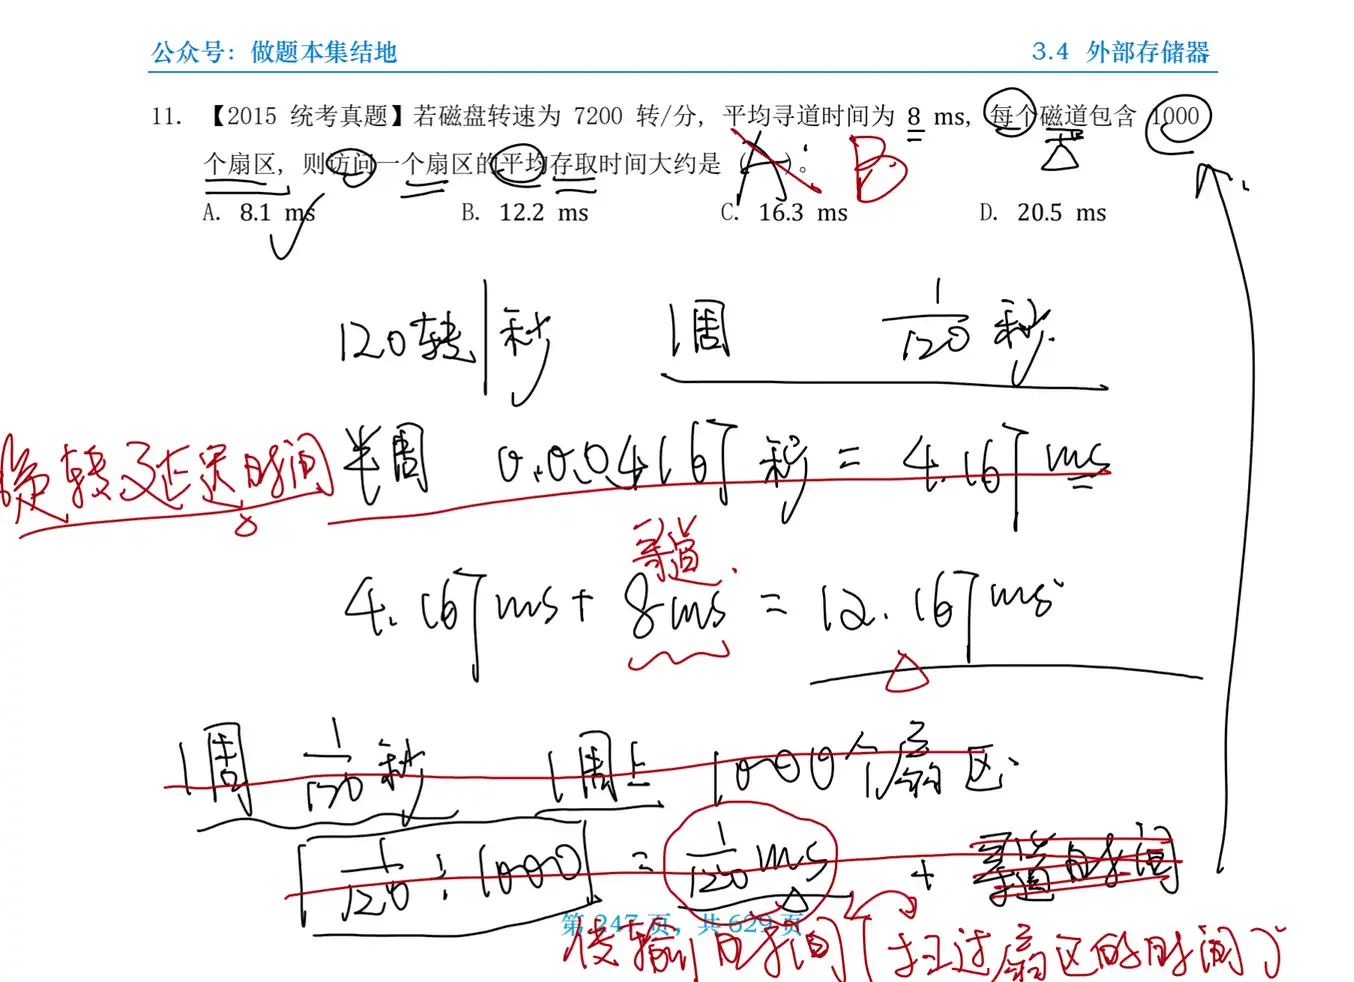 公众号：做题本集结地 3.4 外部存储器
11. 【2015 统考真题】若磁盘转速为 7200 转/分，平均寻道时间为 8 ms，每个磁道包含 1000
个扇区，则访问一个扇区的平均存取时间大约是（ ）。 A B
A. 8.1 ms B. 12.2 ms C. 16.3 ms D. 20.5 ms
120转/秒 1周 1/120 秒
旋转延迟时间 半周 0.004167秒 = 4.167ms
寻道
4.167ms + 8ms = 12.167ms
1周 1/120 秒 1周上 1000个扇区
1/120 ÷ 1000 = 1/120 ms + 寻道时间
第 247 页，共 629 页
传输时间（扫过扇区的时间）